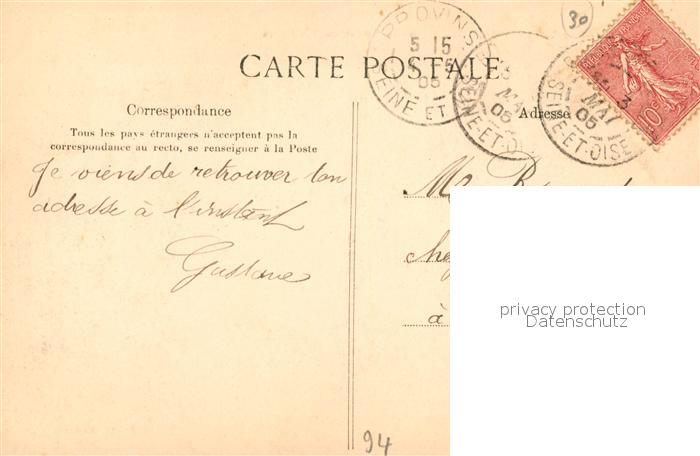 30
PROVINS
5 15
05
SEINE ET
CARTE POSTALE
MAI
05
SEINE-ET-OI
21
MAI
05
SEINE-ET-OISE
10c
Correspondance
Adresse
Tous les pays étrangers n'acceptent pas la
correspondance au recto, se renseigner à la Poste
Je viens de retrouver ton
adresse à l'instant
Gustave
M
chez
à
privacy protection
Datenschutz
94